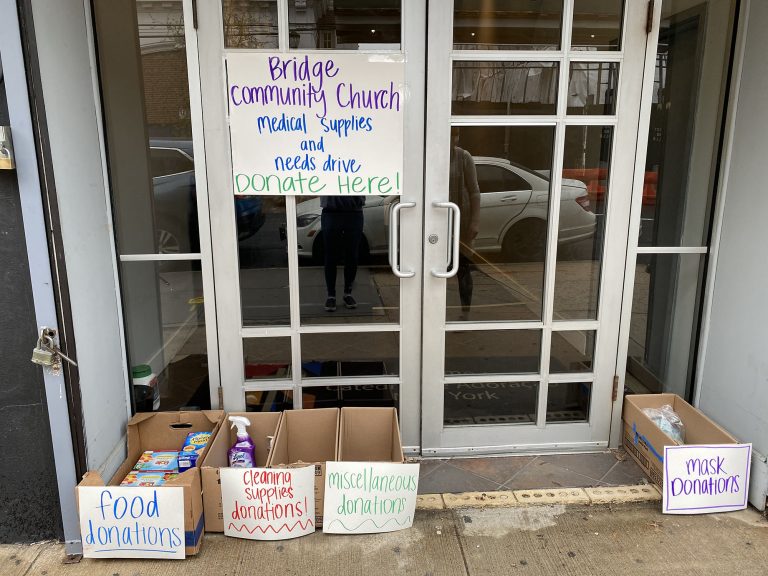 Bridge
Community Church
Medical Supplies
and
needs drive
Donate Here!
food
donations
cleaning
supplies
donations!
miscellaneous
donations
mask
Donations
York